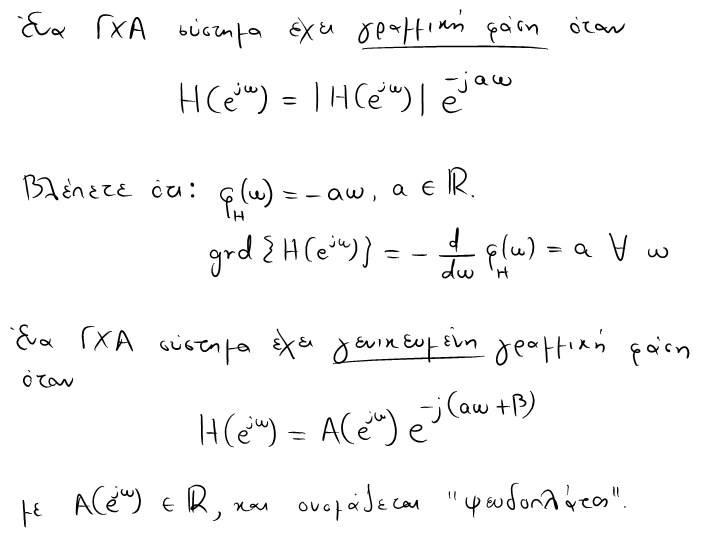 Ένα ΓΧΑ σύστημα έχει γραμμική φάση όταν
H(e^{jω}) = |H(e^{jω})| e^{-jaω}
Βλέπετε ότι: φ_H(ω) = -aω, a ∈ ℝ.
grd{H(e^{jω})} = - d/dω φ_H(ω) = a ∀ ω
Ένα ΓΧΑ σύστημα έχει γενικευμένη γραμμική φάση
όταν
H(e^{jω}) = A(e^{jω}) e^{-j(aω+β)}
με A(e^{jω}) ∈ ℝ, και ονομάζεται "ψευδοπλάτος".